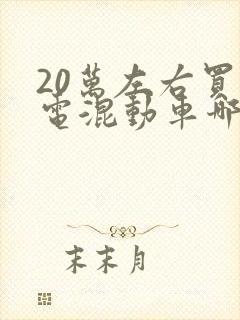 20萬左右買
電混動車哪
末末月